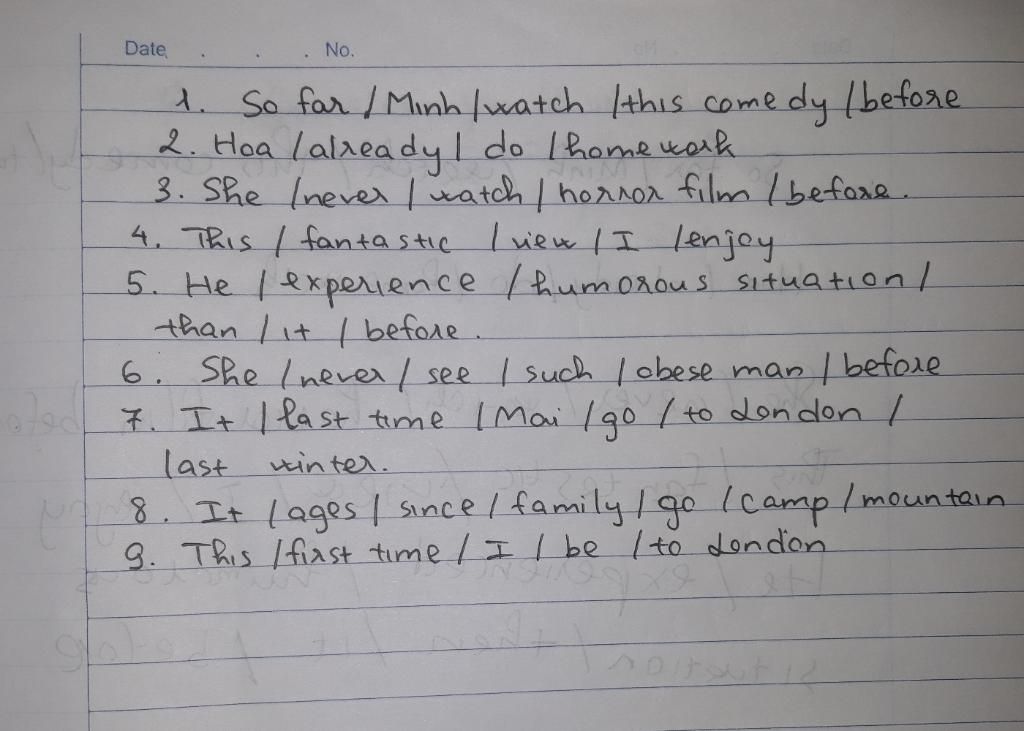 Date . . . No.
1. So far / Minh / watch / this comedy / before
2. Hoa / already / do / homework
3. She / never / watch / horror film / before.
4. This / fantastic / view / I / enjoy
5. He / experience / humorous situation /
than / it / before.
6. She / never / see / such / obese man / before
7. It / last time / Mai / go / to London /
last winter.
8. It / ages / since / family / go / camp / mountain
9. This / first time / I / be / to London